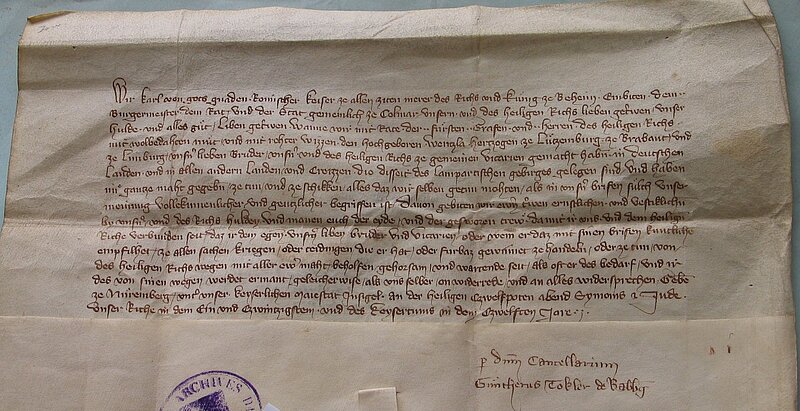 Wir Karl von gots gnaden Romischer keiser ze allen ziten merer des Richs und kunig ze Beheim Embiten dem
Burgermeister dem Rat und der Stat gemeinlich ze Colmar unsern und des heiligen Richs lieben getrwen unser
hulde und alles gut Liben getrwen Wanne wir mit Rate der fursten Grafen und herren des heiligen Richs
mit wolbedahten mut und mit rehter wizzen den hochgeboren Wenzla herzogen ze Lutzemburg ze Brabant und
ze Limburg unsern lieben Bruder unsern und des heiligen Richs ze gemeinen vicarien gemacht haben in Deutschen
Landen und in allen andern Landen und Creizzen die disseit des Lampartischen gebirges gelegen sind Und haben
im ganze maht gegeben ze tun und ze schikken alles daz wir selben getun mohten als in unsern brifen sulch unser
meinung Vollekumenlicher und gentzlicher begriffen ist Davon gebiten wir ewern trwen ernstlichen und vestiklichen
by unsern und des Richs hulden und manen euch der eyde und der gesworen trew da mit ir uns und dem heiligen
Riche verbunden seit daz ir dem egen unserm liben bruder und vicarien oder wem er daz mit sinen brifen kuntliche
empfilhet ze allen sachen kriegen oder teidingen die er hat oder furbaz gewinnet ze handeln oder ze tun von
des heiligen Richs wegen mit aller ewer maht beholfen gehorsam und wartende seit als ofter des bedarf und ir
des von sinen wegen werdet ermant geleicherwise als uns selber on widerrede und an alles widersprechen Gebe
ze Nuremberg unter unser keyserlichen Maiestat Insigel An der heiligen Czwelfpoten abend Symonis & Jude
Unser Riche in dem Ein und Czwintzigstem und des keysertums in dem Czwelften Jare
p dnm Cancellarium
Guntherus Tokler de Babbg
ARCHIVES D